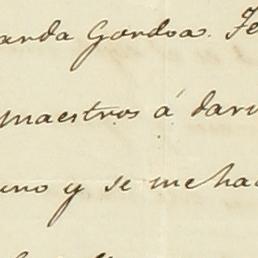 anda Gordoa. Fe
maestros á darm
uno y se me hac